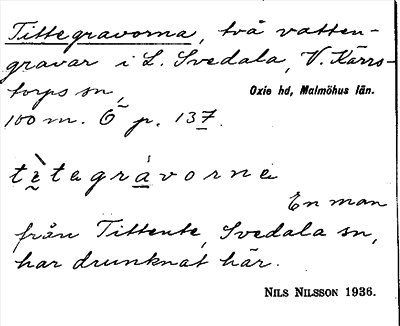 Tittegravorna, två vatten-
gravar i L. Svedala, V. Kärrs-
torps sn, Oxie hd, Malmöhus län.
100 m. Ö p. 137.
tètagrávorna
En man
från Tittente, Svedala sn,
har drunknat här.
NILS NILSSON 1936.